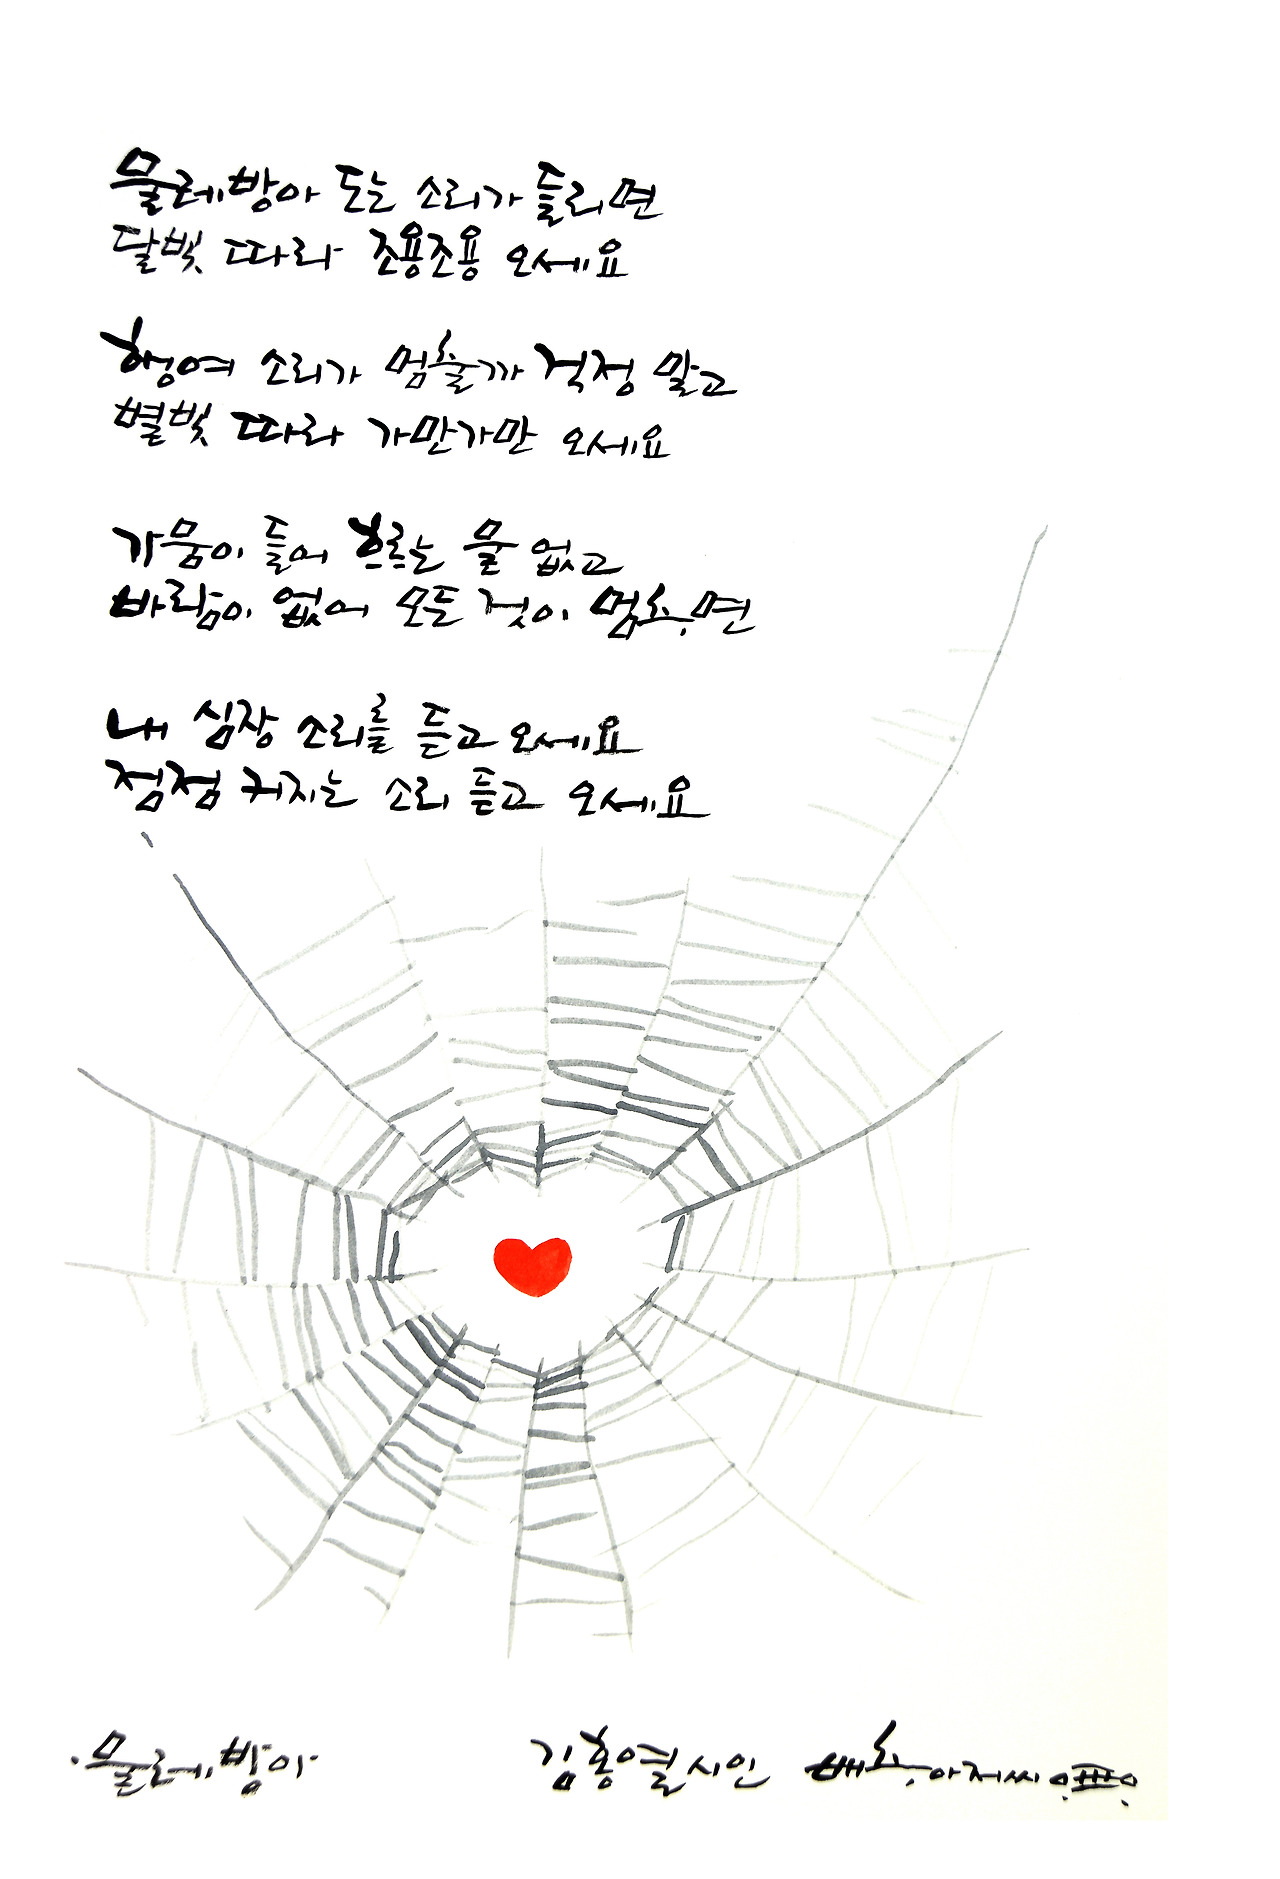 물레방아 도는 소리가 들리면
달빛 따라 조용조용 오세요
행여 소리가 멈출까 걱정 말고
별빛 따라 가만가만 오세요
가뭄이 들어 흐르는 물 없고
바람이 없어 모든 것이 멈추면
내 심장 소리를 듣고 오세요
점점 커지는 소리 듣고 오세요
·물레방아
김홍열시인 배추아저씨